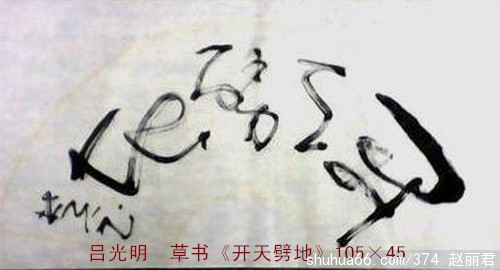 开天劈地
吕光明 草书《开天劈地》105×45
shuhua66.com/374 赵丽君